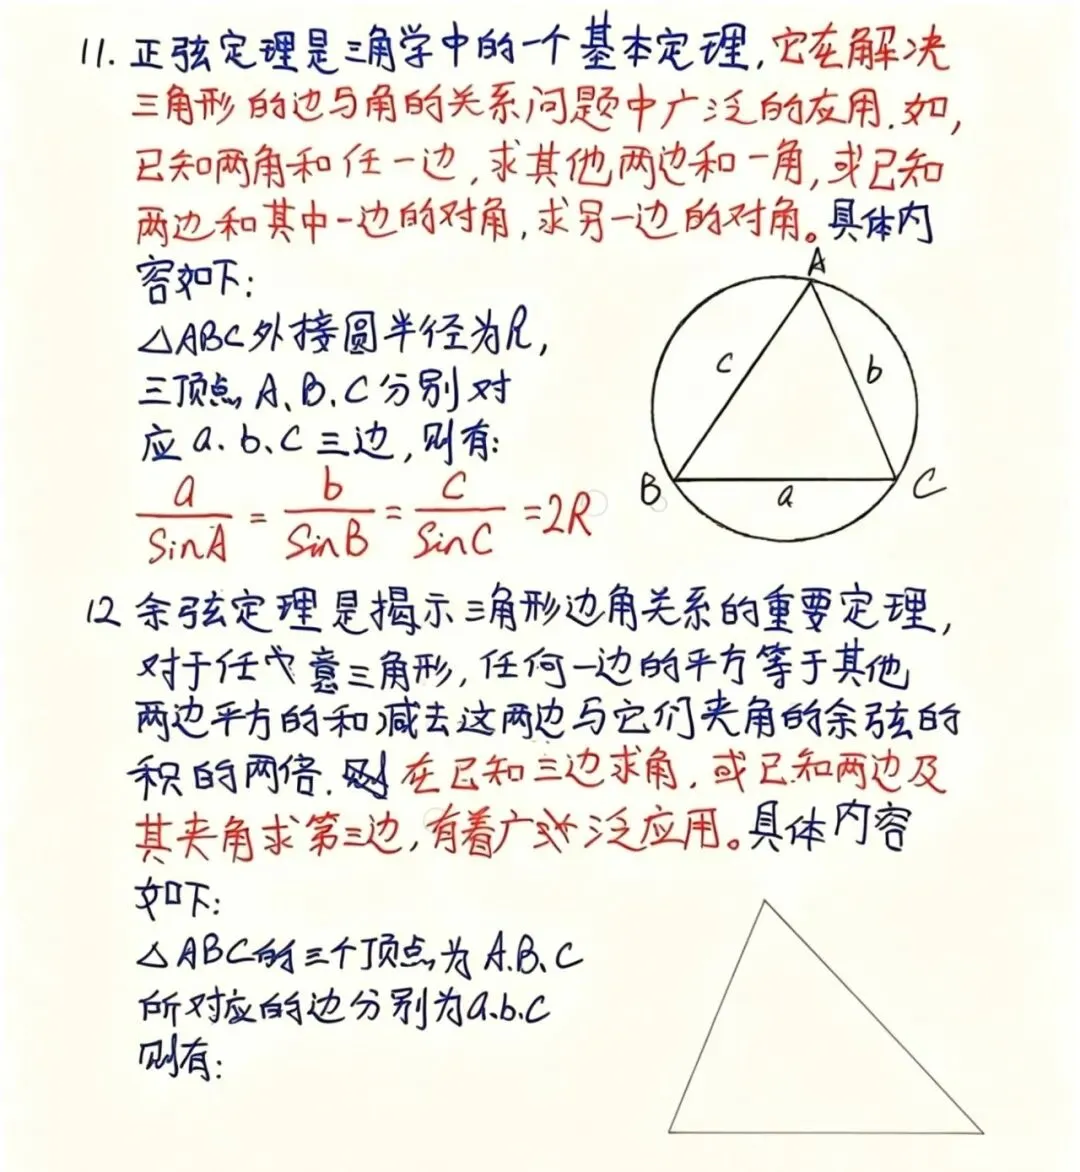 11. 正弦定理是三角学中的一个基本定理,它在解决
三角形的边与角的关系问题中广泛的应用.如,
已知两角和任一边,求其他两边和一角,或已知
两边和其中一边的对角,求另一边的对角。具体内
容如下:
△ABC外接圆半径为R,
三顶点A、B、C分别对
应a.b、c三边,则有:
a/SinA = b/SinB = c/SinC =2R
A
c
b
B
a
C
12 余弦定理是揭示三角形边角关系的重要定理,
对于任意三角形,任何一边的平方等于其他
两边平方的和减去这两边与它们夹角的余弦的
积的两倍.则在已知三边求角,或已知两边及
其夹角求第三边,有着广泛应用。具体内容
如下:
△ABC的三个顶点为A.B、C
所对应的边分别为a.b.c
则有: